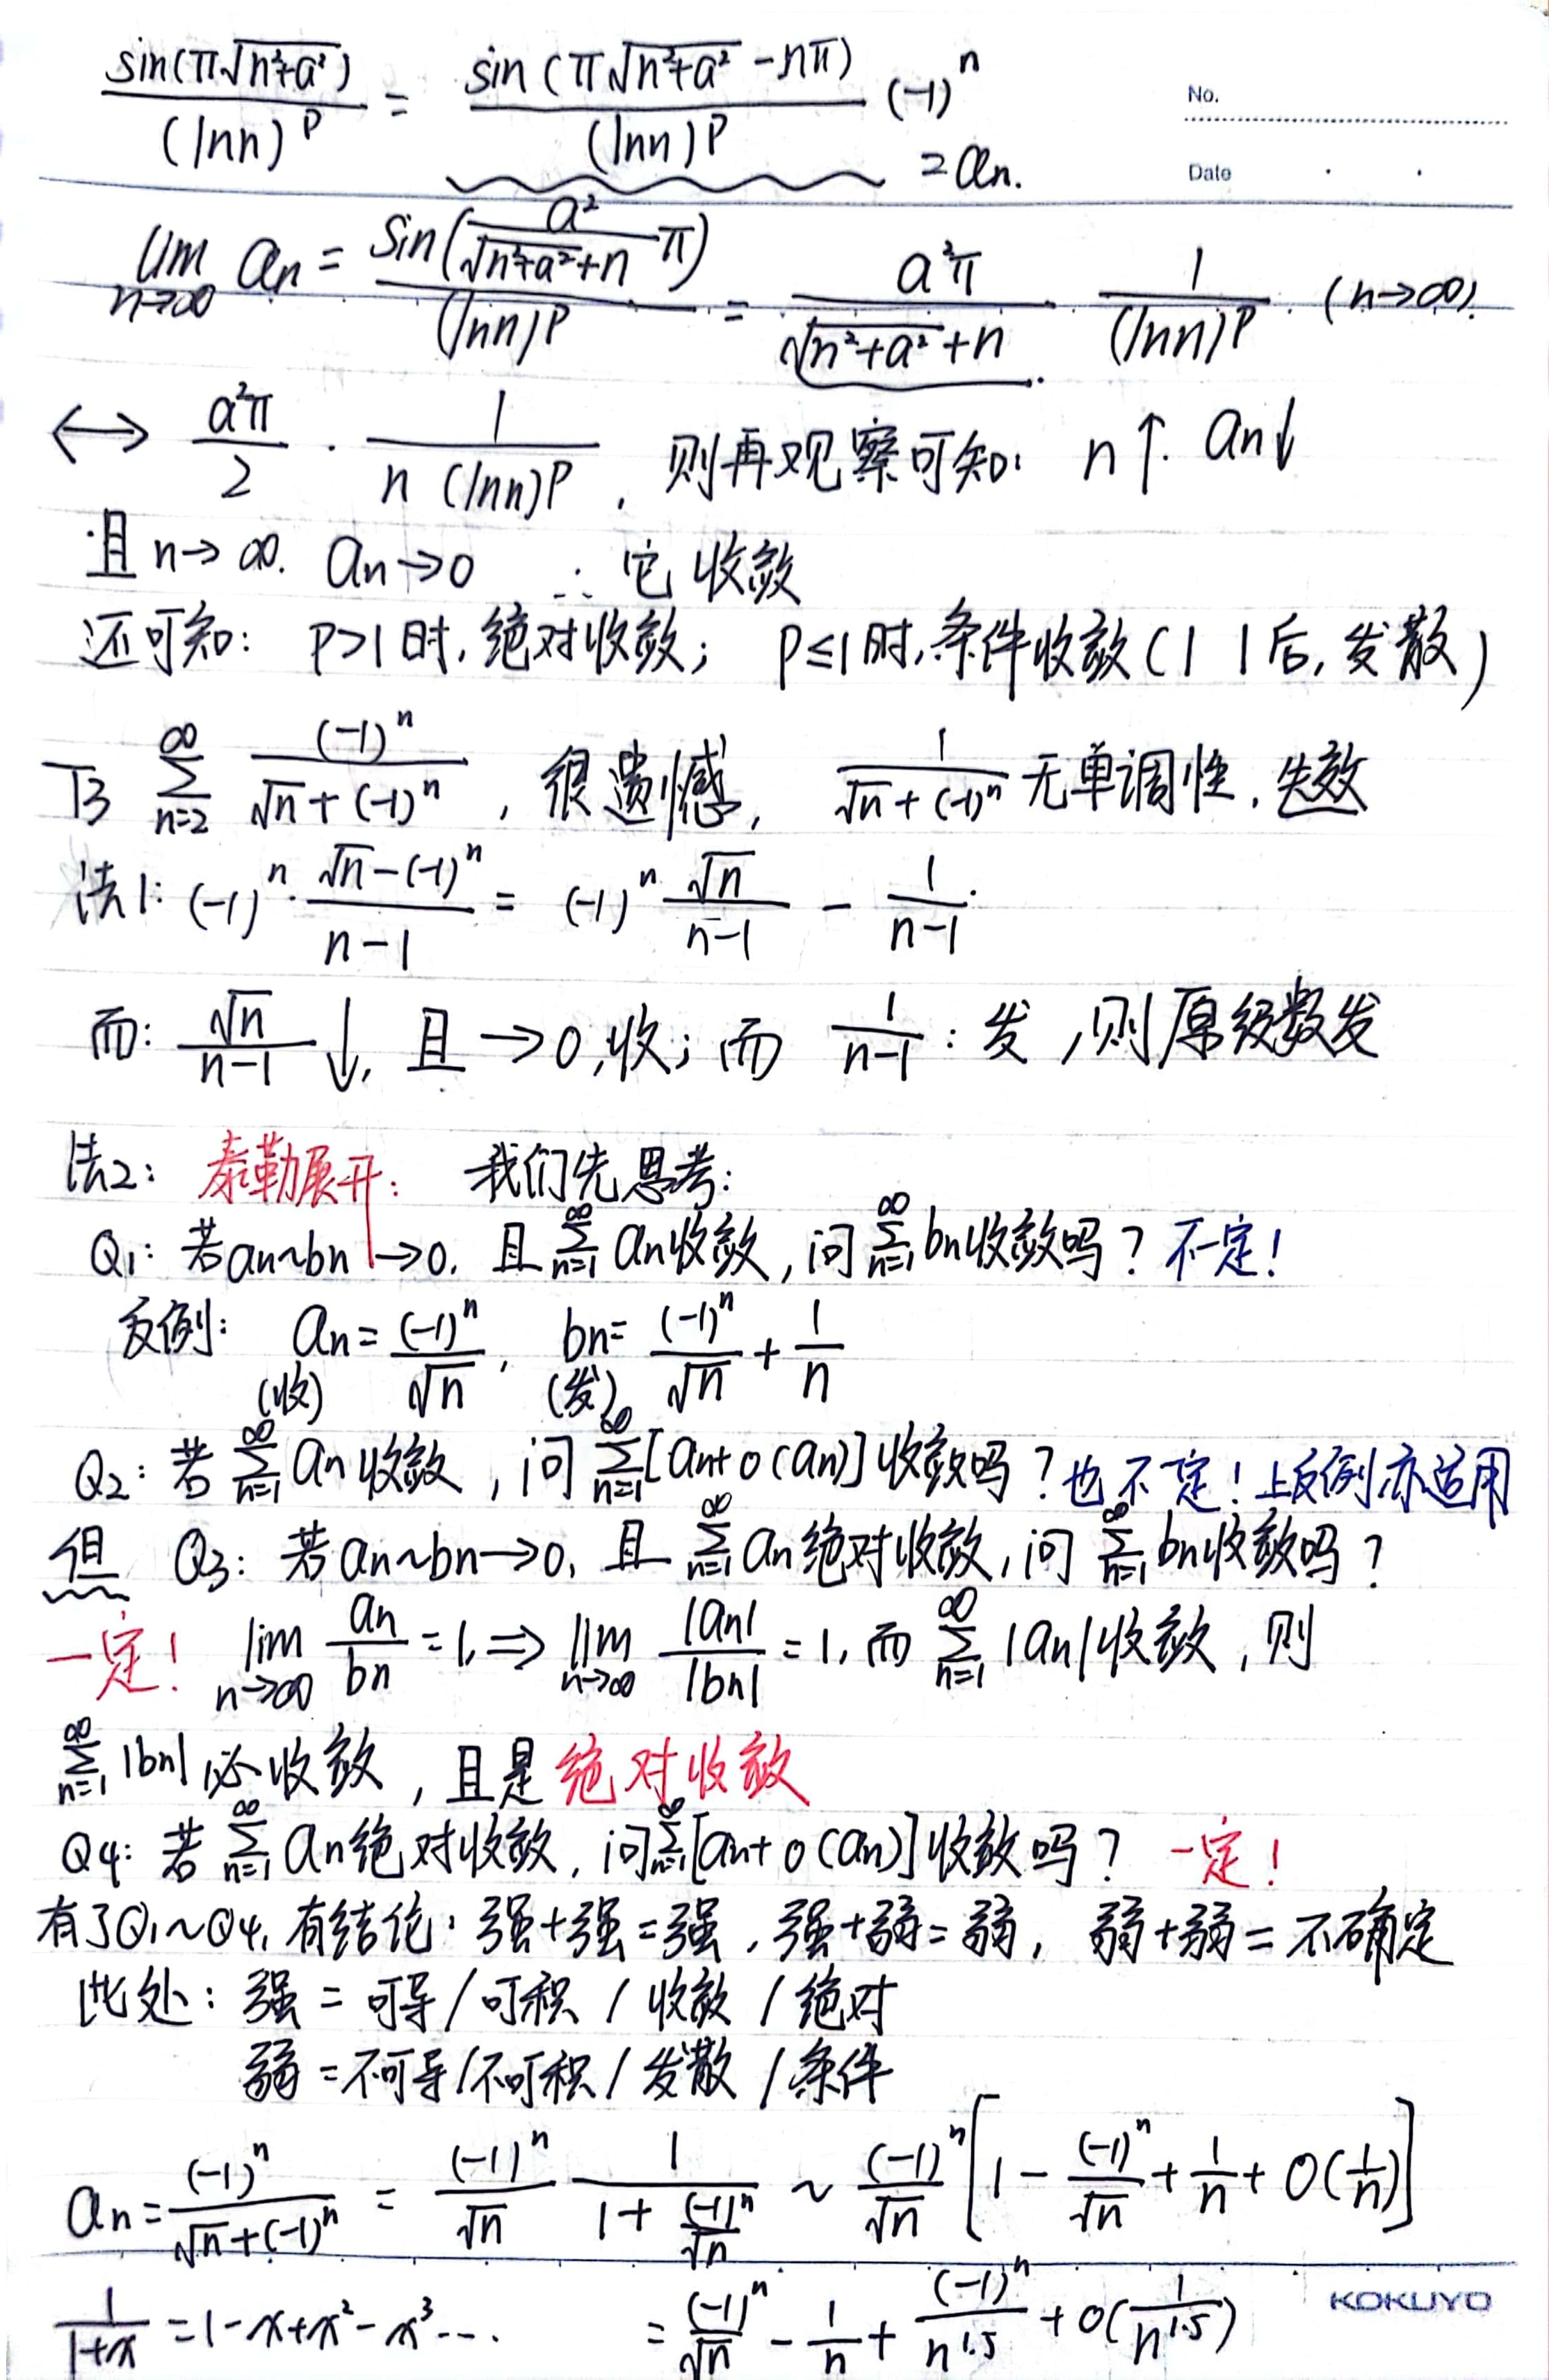 No.
Date
sin(π√(n²+a²)) / (lnn)^p = sin(π√(n²+a²) - nπ) / (lnn)^p (-1)^n
= an.
lim n→∞ an = sin(a²/(√(n²+a²)+n) π) / (lnn)^p = a²π/(√(n²+a²)+n) · 1/(lnn)^p . (n→∞).
↔ a²π/2 · 1/(n (lnn)^p) , 则再观察可知: n↑. an↓
且 n→∞. an→0 ∴ 它收敛
还可知: P>1时,绝对收敛; P≤1时,条件收敛(| |后,发散)
T3 ∑_{n=2}^∞ (-1)^n/(√n+(-1)^n) , 很遗憾, 1/(√n+(-1)^n) 无单调性,失效
法1: (-1)^n · (√n-(-1)^n)/(n-1) = (-1)^n √n/(n-1) - 1/(n-1).
而: √n/(n-1) ↓, 且→0,收; 而 1/(n-1): 发,则原级数发
法2: 泰勒展开: 我们先思考:
Q1: 若an~bn→0, 且∑_{n=1}^∞ an收敛,问∑_{n=1}^∞ bn收敛吗? 不一定!
反例: an = (-1)^n/√n, bn = (-1)^n/√n + 1/n
(收) (发)
Q2: 若∑_{n=1}^∞ an收敛,问∑_{n=1}^∞ [an+o(an)]收敛吗?也不定!上反例亦适用
但 Q3: 若an~bn→0, 且∑_{n=1}^∞ an绝对收敛,问∑_{n=1}^∞ bn收敛吗?
一定! lim n→∞ an/bn = 1, ⇒ lim n→∞ |an|/|bn| = 1, 而∑_{n=1}^∞ |an|收敛,则
∑_{n=1}^∞ |bn|必收敛,且是绝对收敛
Q4: 若∑_{n=1}^∞ an绝对收敛,问∑_{n=1}^∞ [an+o(an)]收敛吗? 一定!
有了Q1~Q4,有结论:强+强=强,强+弱=弱,弱+弱=不确定
此处:强=可导/可积/收敛/绝对
弱=不可导/不可积/发散/条件
an = (-1)^n/(√n+(-1)^n) = (-1)^n/√n · 1/(1+(-1)^n/√n) ~ (-1)^n/√n [1 - (-1)^n/√n + 1/n + o(1/n)]
1/(1+x) = 1-x+x²-x³… = (-1)^n/√n - 1/n + (-1)^n/n^1.5 + o(1/n^1.5)
KOKUYO